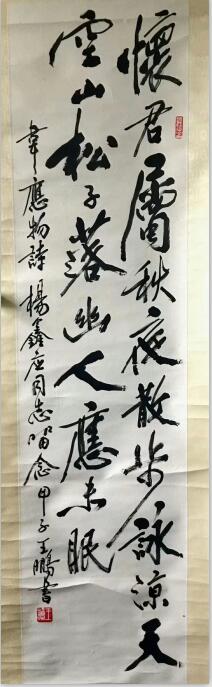 懷君屬秋夜散步詠涼天
空山松子落幽人應未眠
韋應物詩 楊鑫应同志留念 甲子王鵬書